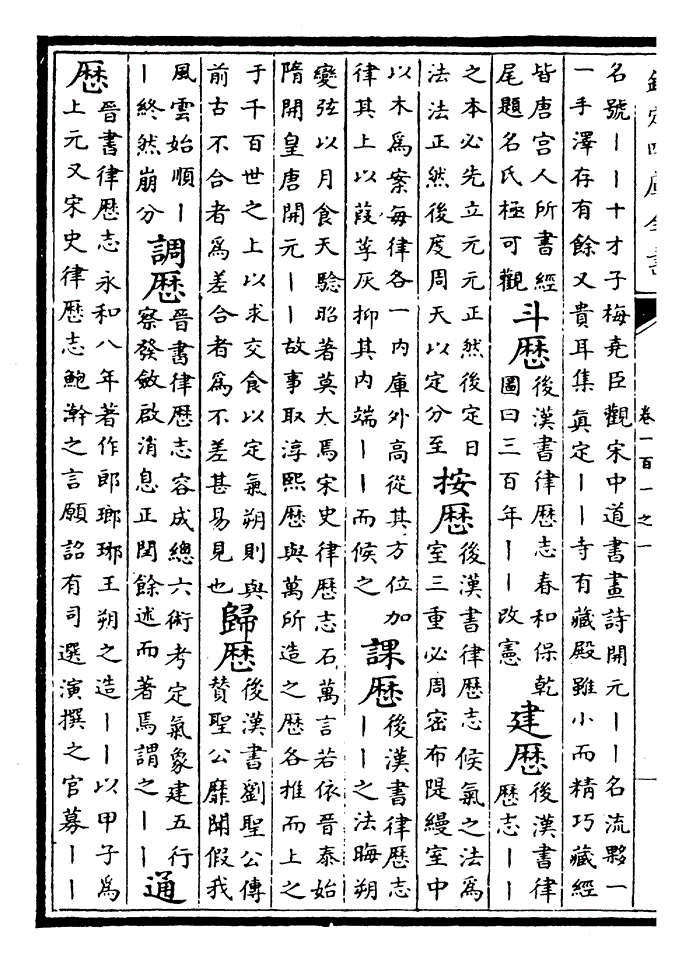 欽定四庫全書
卷一百一之一
名號丨丨十才子梅堯臣觀宋中道書畫詩開元丨丨名流夥一
一手澤存有餘又貴耳集真定丨丨寺有藏殿雖小而精巧藏經
皆唐宫人所書經
尾題名氏極可觀
斗厯
後漢書律厯志春和保乾
圖曰三百年丨丨改憲
建厯
後漢書律
厯志丨丨
之本必先立元元正然後定日
法法正然後度周天以定分至
按厯
後漢書律厯志候氣之法爲
室三重必周密布緹縵室中
以木爲案每律各一内庫外高從其方位加
律其上以葭莩灰抑其内端丨丨而候之
課厯
後漢書律厯志
丨丨之法晦朔
變弦以月食天驗昭著莫大焉宋史律厯志石萬言若依晉泰始
隋開皇唐開元丨丨故事取淳熙厯與萬所造之厯各推而上之
于千百世之上以求交食以定氣朔則與
前古不合者爲差合者爲不差甚易見也
歸厯
後漢書劉聖公傳
贊聖公靡聞假我
風雲始順丨
丨終然崩分
調厯
晉書律厯志容成總六術考定氣象建五行
察發斂啟消息正閏餘述而著焉謂之丨丨
通
厯
晉書律厯志永和八年著作郎瑯琊王朔之造丨丨以甲子爲
上元又宋史律厯志鮑澣之言願詔有司選演撰之官募丨丨